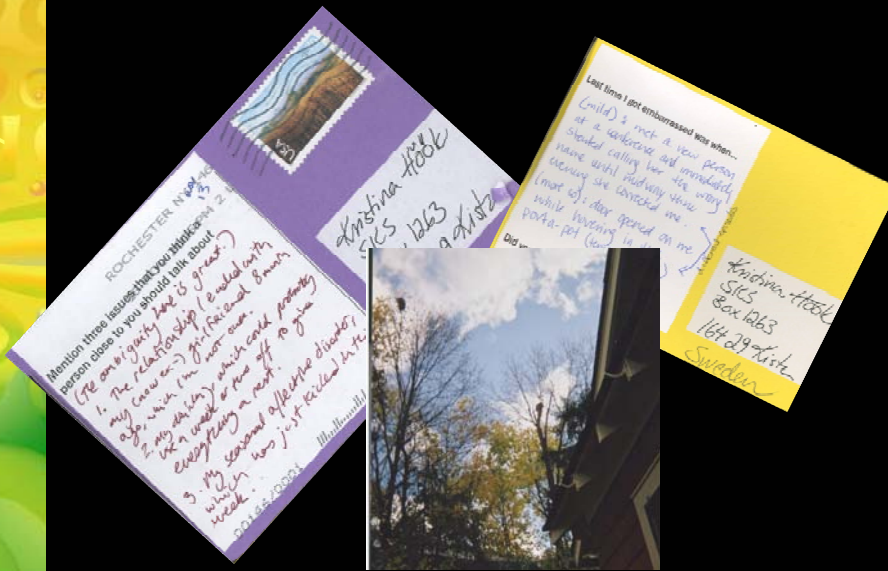 USA
ROCHESTER NY
Kristina Höök
SICS
1263
Mention three issues that you think a
person close to you should talk about
(The ambiguity here is great.)
1. The relationship I ended with
my (now ex-) girlfriend 8 months
ago, which I'm not over.
2. My dad's, which could probably
use a week or two off to give
everything a rest.
3. My seasonal affective disorder,
which was just kicked in this
week.
Last time I got embarrassed was when...
(mild) I met a new person
at a conference and immediately
started calling her the wrong
name until midway thru
evening she corrected me.
(most so): door opened on me
while hovering in
port-a-pot
Did
Kristina Höök
SICS
Box 1263
164 29 Kista
Sweden